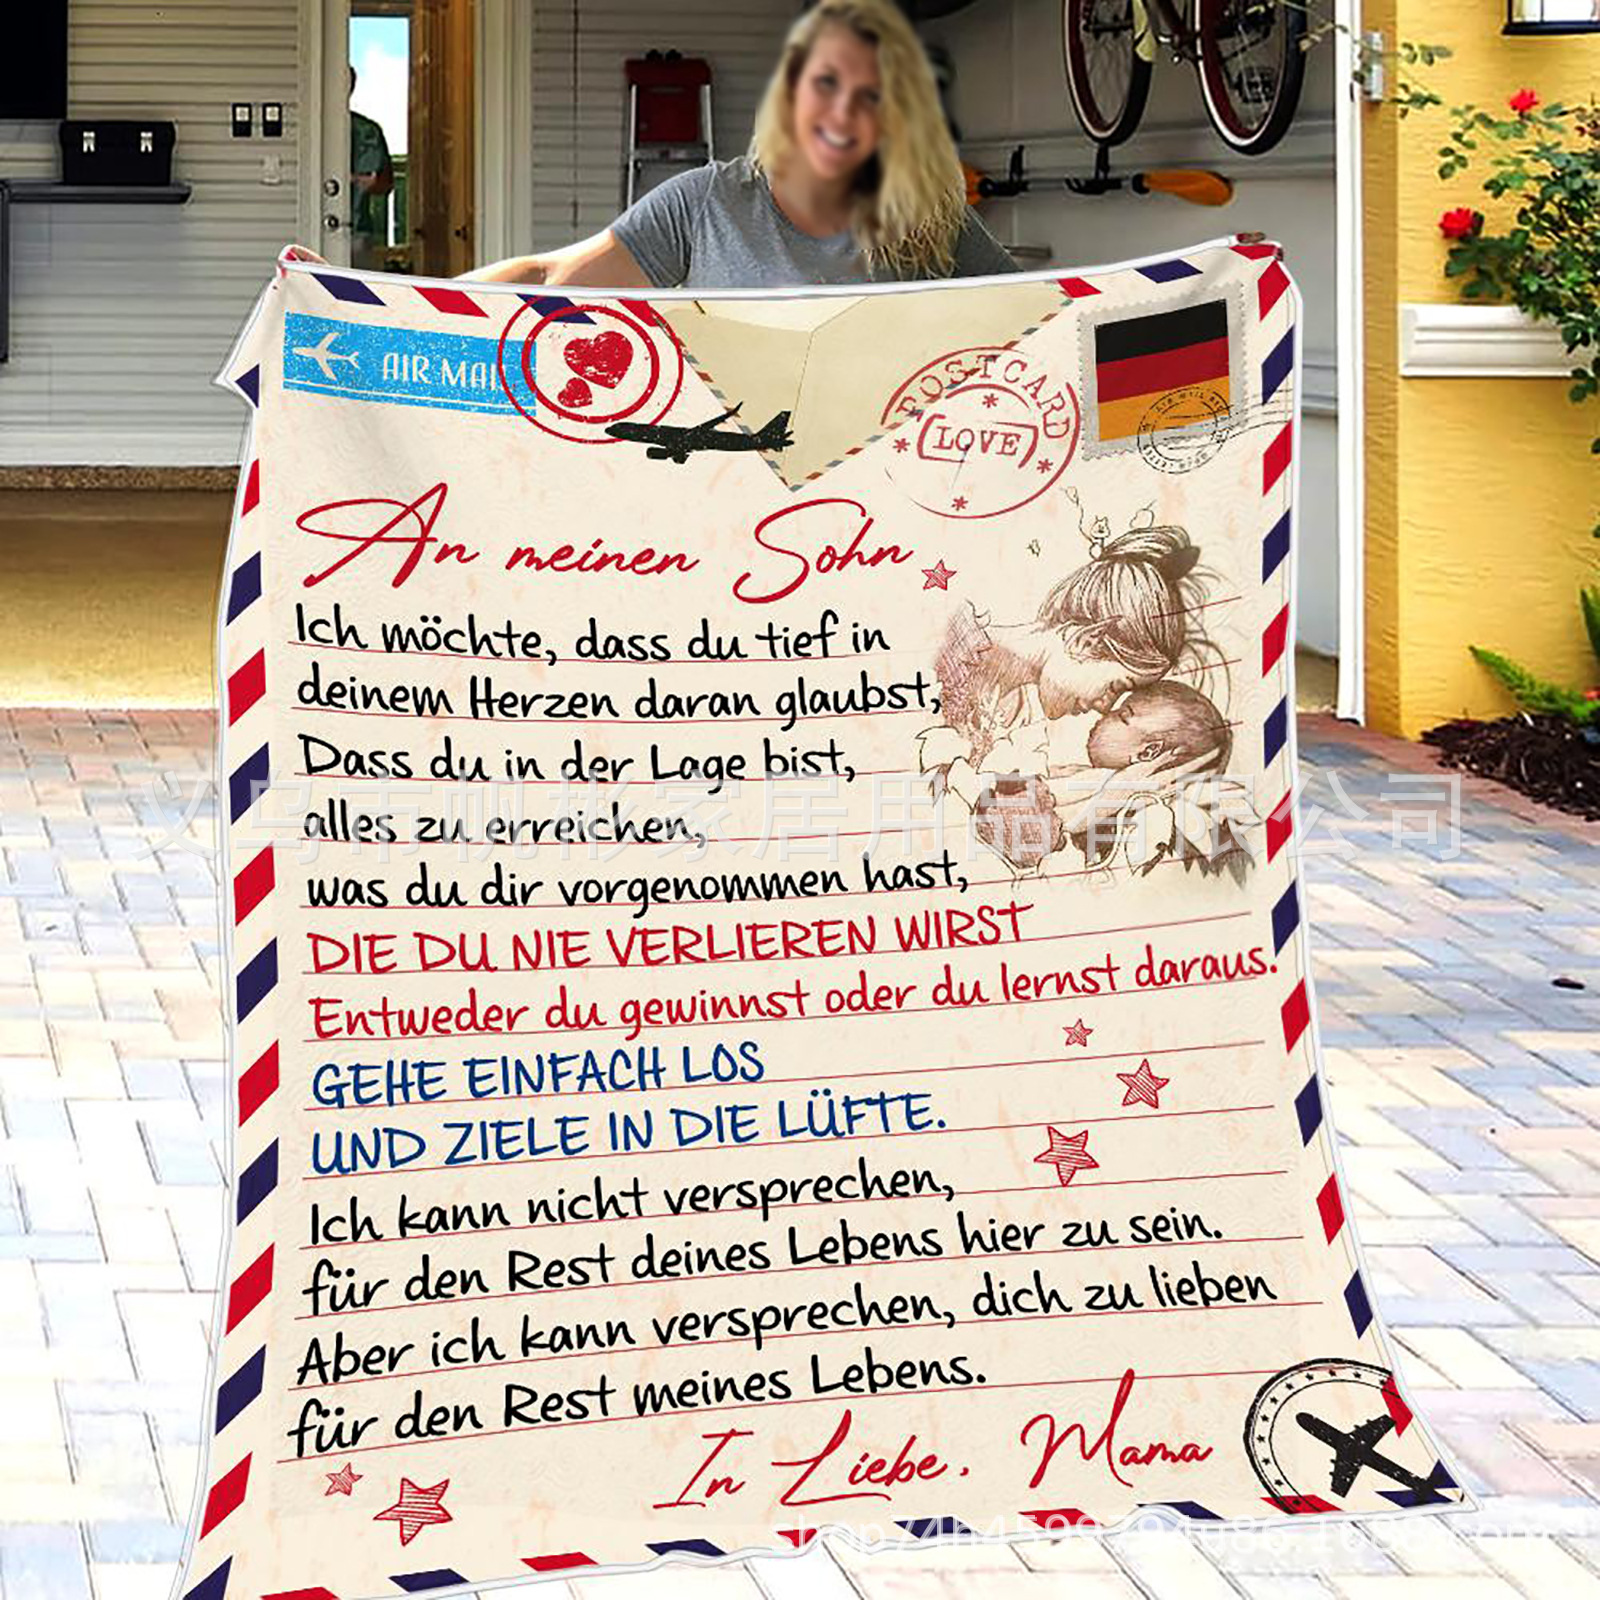 AIR MAIL
POSTCARD
LOVE
An meinen Sohn
Ich möchte, dass du tief in
deinem Herzen daran glaubst,
Dass du in der Lage bist,
alles zu erreichen,
was du dir vorgenommen hast,
DIE DU NIE VERLIEREN WIRST
Entweder du gewinnst oder du lernst daraus.
GEHE EINFACH LOS
UND ZIELE IN DIE LÜFTE.
Ich kann nicht versprechen,
für den Rest deines Lebens hier zu sein.
Aber ich kann versprechen, dich zu lieben
für den Rest meines Lebens.
In Liebe, Mama
义乌市帆彬家居用品有限公司